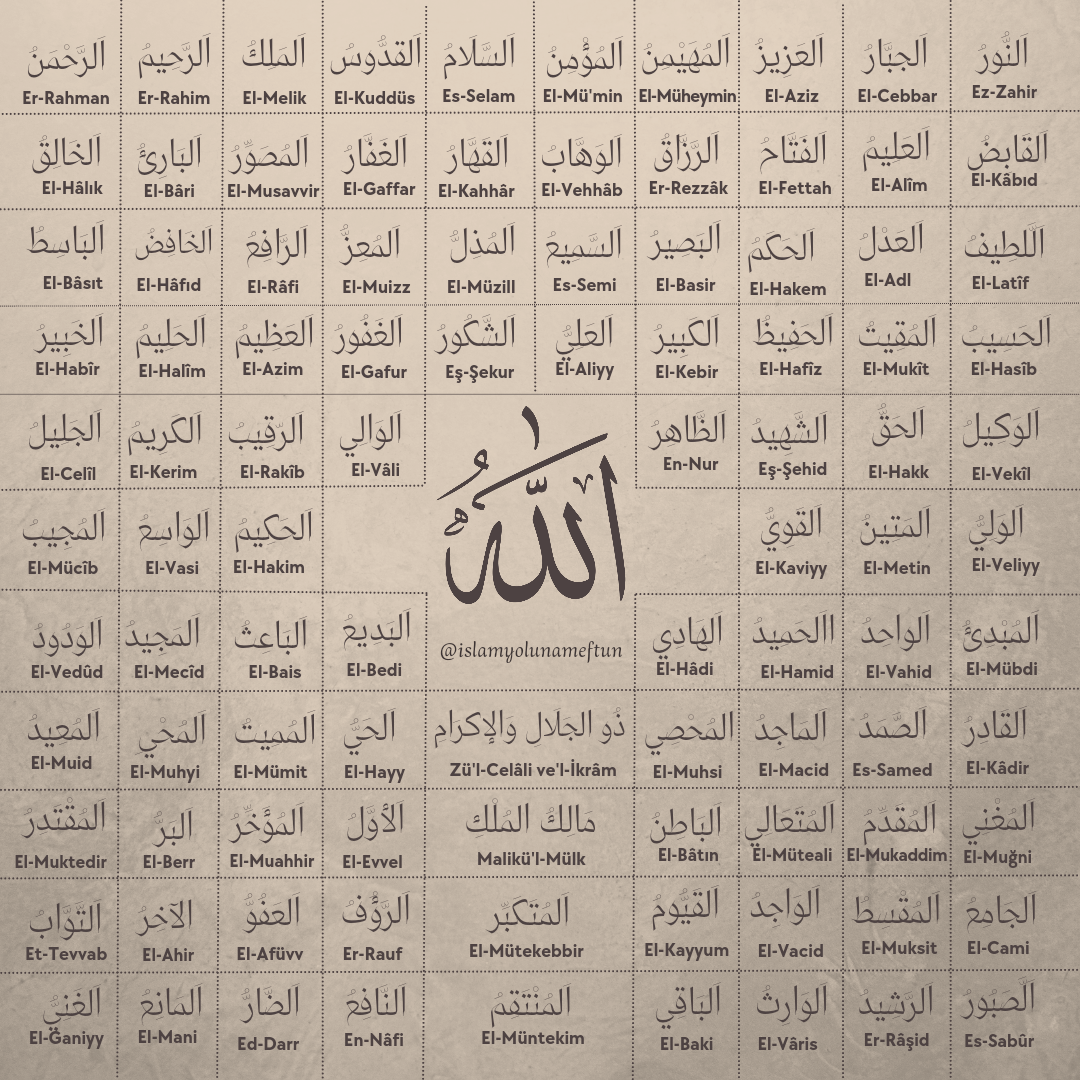 اَلرَّحْمَنُ
Er-Rahman
اَلرَّحِيمُ
Er-Rahim
اَلمَلِكُ
El-Melik
اَلقدُّوسُ
El-Kuddüs
اَلسَّلَامُ
Es-Selam
اَلمُؤْمِنُ
El-Mü'min
اَلمُهَيْمِنُ
El-Müheymin
اَلعَزِيزُ
El-Aziz
اَلجبَّارُ
El-Cebbar
اَلنُّورُ
Ez-Zahir
اَلخَالِقُ
El-Hâlık
اَلبَارِئُ
El-Bâri
اَلمُصَوِّرُ
El-Musavvir
اَلغَفَّارُ
El-Gaffar
اَلقهَّارُ
El-Kahhâr
اَلوَهَّابُ
El-Vehhâb
اَلرَّزَّاقُ
Er-Rezzâk
اَلفَتَّاحُ
El-Fettah
اَلعَلِيمُ
El-Alîm
اَلقَابِضُ
El-Kâbıd
اَلبَاسِطُ
El-Bâsıt
اَلخَافِضُ
El-Hâfıd
اَلرَّافِعُ
El-Râfi
اَلمُعِزُّ
El-Muizz
اَلمُذِلُّ
El-Müzill
اَلسَّمِيعُ
Es-Semi
اَلبَصِيرُ
El-Basir
اَلحَكَمُ
El-Hakem
اَلعَدْلُ
El-Adl
اَللَّطِيفُ
El-Latîf
اَلخَبِيرُ
El-Habîr
اَلحَلِيمُ
El-Halîm
اَلعَظِيمُ
El-Azim
اَلغَفُورُ
El-Gafur
اَلشَّكُورُ
Eş-Şekur
اَلعَلِيُّ
El-Aliyy
اَلكَبِيرُ
El-Kebir
اَلحَفِيظُ
El-Hafîz
اَلمُقِيتُ
El-Mukît
اَلحَسِيبُ
El-Hasîb
اَلجَلِيلُ
El-Celîl
اَلكَرِيمُ
El-Kerim
اَلرَّقِيبُ
El-Rakîb
اَلوَالِي
El-Vâli
اَلظَّاهِرُ
En-Nur
اَلشَّهِيدُ
Eş-Şehid
اَلحَقُّ
El-Hakk
اَلوَكِيلُ
El-Vekîl
اللهُ
اَلمُجِيبُ
El-Mücîb
اَلوَاسِعُ
El-Vasi
اَلحَكِيمُ
El-Hakim
اَلقَوِيُّ
El-Kaviyy
اَلمَتِينُ
El-Metin
اَلوَلِيُّ
El-Veliyy
اَلوَدُودُ
El-Vedûd
اَلمَجِيدُ
El-Mecîd
اَلبَاعِثُ
El-Bais
اَلبَدِيعُ
El-Bedi
@islamyolunameftun
اَلهَادِي
El-Hâdi
االحَمِيدُ
El-Hamid
اَلواحِدُ
El-Vahid
اَلمُبْدِئُ
El-Mübdi
اَلمُعِيدُ
El-Muid
اَلمُحْيِ
El-Muhyi
اَلمُمِيتُ
El-Mümit
اَلحَيُّ
El-Hayy
ذُو الجَلَالِ وَالإكرَامِ
Zü'l-Celâli ve'l-İkrâm
اَلمُحْصِي
El-Muhsi
اَلمَاجِدُ
El-Macid
اَلصَّمَدُ
Es-Samed
اَلقَادِرُ
El-Kâdir
اَلمُقْتَدِرُ
El-Muktedir
اَلبَرُّ
El-Berr
اَلمُؤَخِّرُ
El-Muahhir
اَلأَوَّلُ
El-Evvel
مَالِكُ المُلْكِ
Malikü'l-Mülk
اَلبَاطِنُ
El-Bâtın
اَلمُتَعَالِي
El-Müteali
اَلمُقَدِّمُ
El-Mukaddim
اَلمُغْنِي
El-Muğni
اَلتَّوَّابُ
Et-Tevvab
اَلآخرُ
El-Ahir
اَلعَفُوُّ
El-Afüvv
اَلرَّؤُفُ
Er-Rauf
اَلمُتَكبِّر
El-Mütekebbir
اَلقيُّومُ
El-Kayyum
اَلوَاجِدُ
El-Vacid
اَلمُقْسِطُ
El-Muksit
اَلجَامِعُ
El-Cami
اَلغَنِيُّ
El-Ğaniyy
اَلمَانِعُ
El-Mani
اَلضَّارُّ
Ed-Darr
اَلنَّافِعُ
En-Nâfi
اَلمُنْتَقِمُ
El-Müntekim
اَلبَاقِي
El-Baki
اَلوَارِثُ
El-Vâris
اَلرَّشِيدُ
Er-Râşid
اَلصَّبُورُ
Es-Sabûr